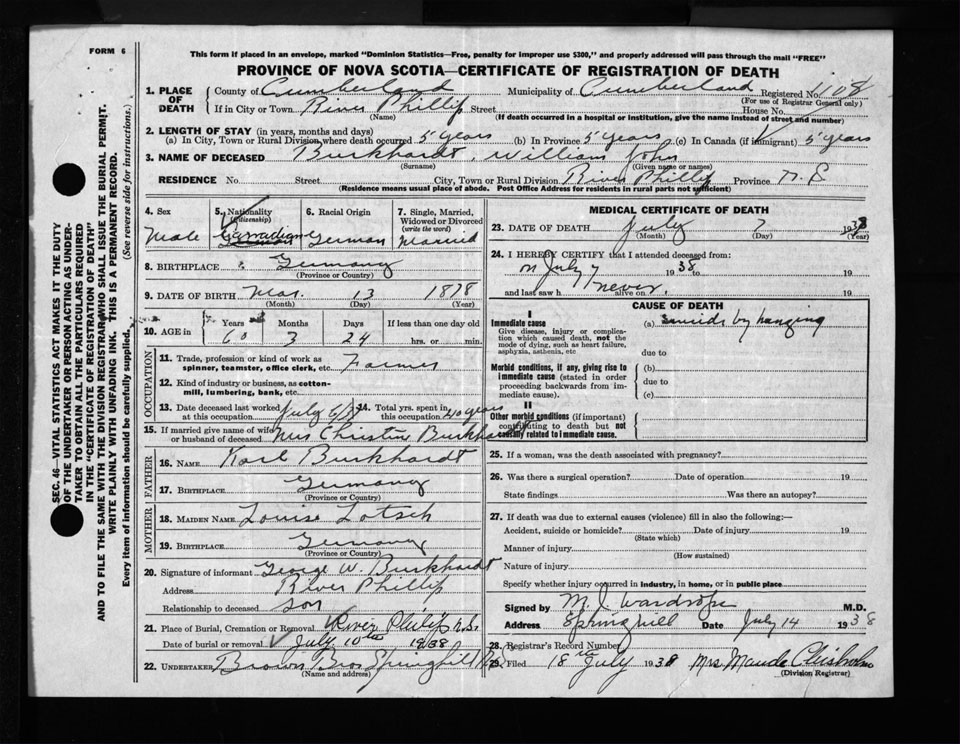 FORM 6
This form if placed in an envelope, marked "Dominion Statistics—Free, penalty for improper use $300," and properly addressed will pass through the mail "FREE"
PROVINCE OF NOVA SCOTIA—CERTIFICATE OF REGISTRATION OF DEATH
1. PLACE OF DEATH County of Cumberland Municipality of Cumberland Registered No. 108
(For use of Registrar General only)
If in City or Town River Phillip Street House No.
(Name) (If death occurred in a hospital or institution, give the name instead of street and number)
2. LENGTH OF STAY (in years, months and days)
(a) In City, Town or Rural Division where death occurred 5 years (b) In Province 5 years (c) In Canada (if immigrant) 5 years
3. NAME OF DECEASED Burkhardt, William John
(Surname) (Given name or names)
RESIDENCE No. Street City, Town or Rural Division River Phillip Province N.S
(Residence means usual place of abode. Post Office Address for residents in rural parts not sufficient)
4. Sex 5. Nationality (Citizenship) 6. Racial Origin 7. Single, Married, Widowed or Divorced (write the word)
Male Canadian German Married
8. BIRTHPLACE Germany
(Province or Country)
9. DATE OF BIRTH Mar. 13 1878
(Month) (Day) (Year)
10. AGE in Years Months Days If less than one day old
60 3 24 hrs. or min.
OCCUPATION
11. Trade, profession or kind of work as spinner, teamster, office clerk, etc. Farmer
12. Kind of industry or business, as cotton-mill, lumbering, bank, etc.
13. Date deceased last worked at this occupation July 6/38 14. Total yrs. spent in this occupation 40 years
15. If married give name of wife or husband of deceased Mrs Christin Burkhardt
FATHER
16. NAME Karl Burkhardt
17. BIRTHPLACE Germany
(Province or Country)
MOTHER
18. MAIDEN NAME Louise Lotsch
19. BIRTHPLACE Germany
(Province or Country)
20. Signature of informant George W. Burkhardt
Address River Phillip
Relationship to deceased Son
21. Place of Burial, Cremation or Removal River Philip N.S.
Date of burial or removal July 10th 1938
22. UNDERTAKER Brown Bros Springhill N.S.
(Name and address)
MEDICAL CERTIFICATE OF DEATH
23. DATE OF DEATH July 7 1938
(Month) (Day) (Year)
24. I HEREBY CERTIFY that I attended deceased from:
on July 7 1938 to 19
and last saw h never. alive on 19
CAUSE OF DEATH
I
Immediate cause (a) Suicide by hanging
Give disease, injury or complication which caused death, not the mode of dying, such as heart failure, asphyxia, asthenia, etc
due to
Morbid conditions, if any, giving rise to immediate cause (stated in order proceeding backwards from immediate cause).
(b)
due to
(c)
II
Other morbid conditions (if important) contributing to death but not causally related to immediate cause.
25. If a woman, was the death associated with pregnancy?
26. Was there a surgical operation? Date of operation 193
State findings Was there an autopsy?
27. If death was due to external causes (violence) fill in also the following:—
Accident, suicide or homicide? Date of injury 19
(State which)
Manner of injury
(How sustained)
Nature of injury
Specify whether injury occurred in industry, in home, or in public place
Signed by M. J. Wardrope M.D.
Address Springhill Date July 14 1938
28. Registrar's Record Number
29. Filed 18th July 1938 Mrs. Maude Chisholm
(Division Registrar)
SEC. 46—VITAL STATISTICS ACT MAKES IT THE DUTY
OF THE UNDERTAKER OR PERSON ACTING AS UNDER-
TAKER TO OBTAIN ALL THE PARTICULARS REQUIRED
IN THE "CERTIFICATE OF REGISTRATION OF DEATH"
AND TO FILE THE SAME WITH THE DIVISION REGISTRAR WHO SHALL ISSUE THE BURIAL PERMIT.
WRITE PLAINLY WITH UNFADING INK. THIS IS A PERMANENT RECORD.
Every item of information should be carefully supplied. (See reverse side for instructions.)